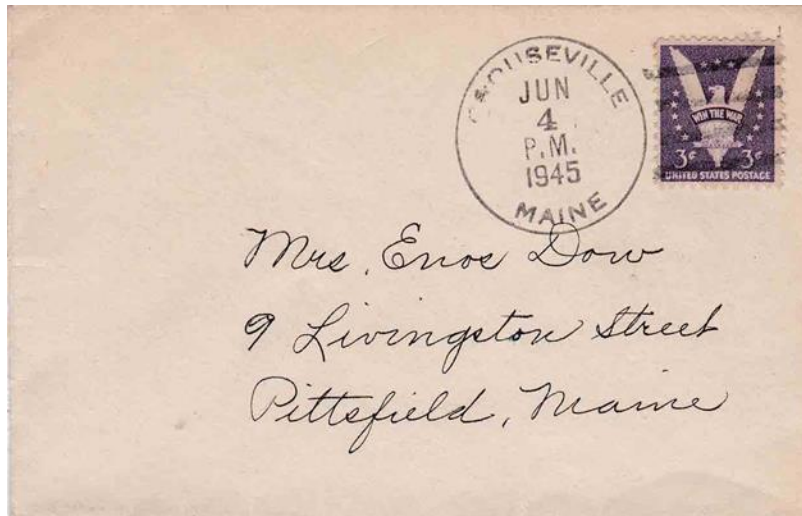 CROUSEVILLE
JUN
4
P.M.
1945
MAINE
WIN THE WAR
3¢ 3¢
UNITED STATES POSTAGE
Mrs. Enos Dow
9 Livingston Street
Pittsfield, Maine